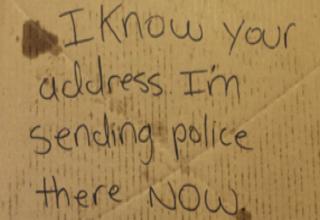 I Know your
address. I'm
sending police
there NOW.